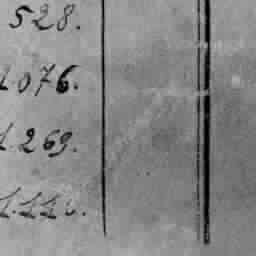 528.
1076.
1269.